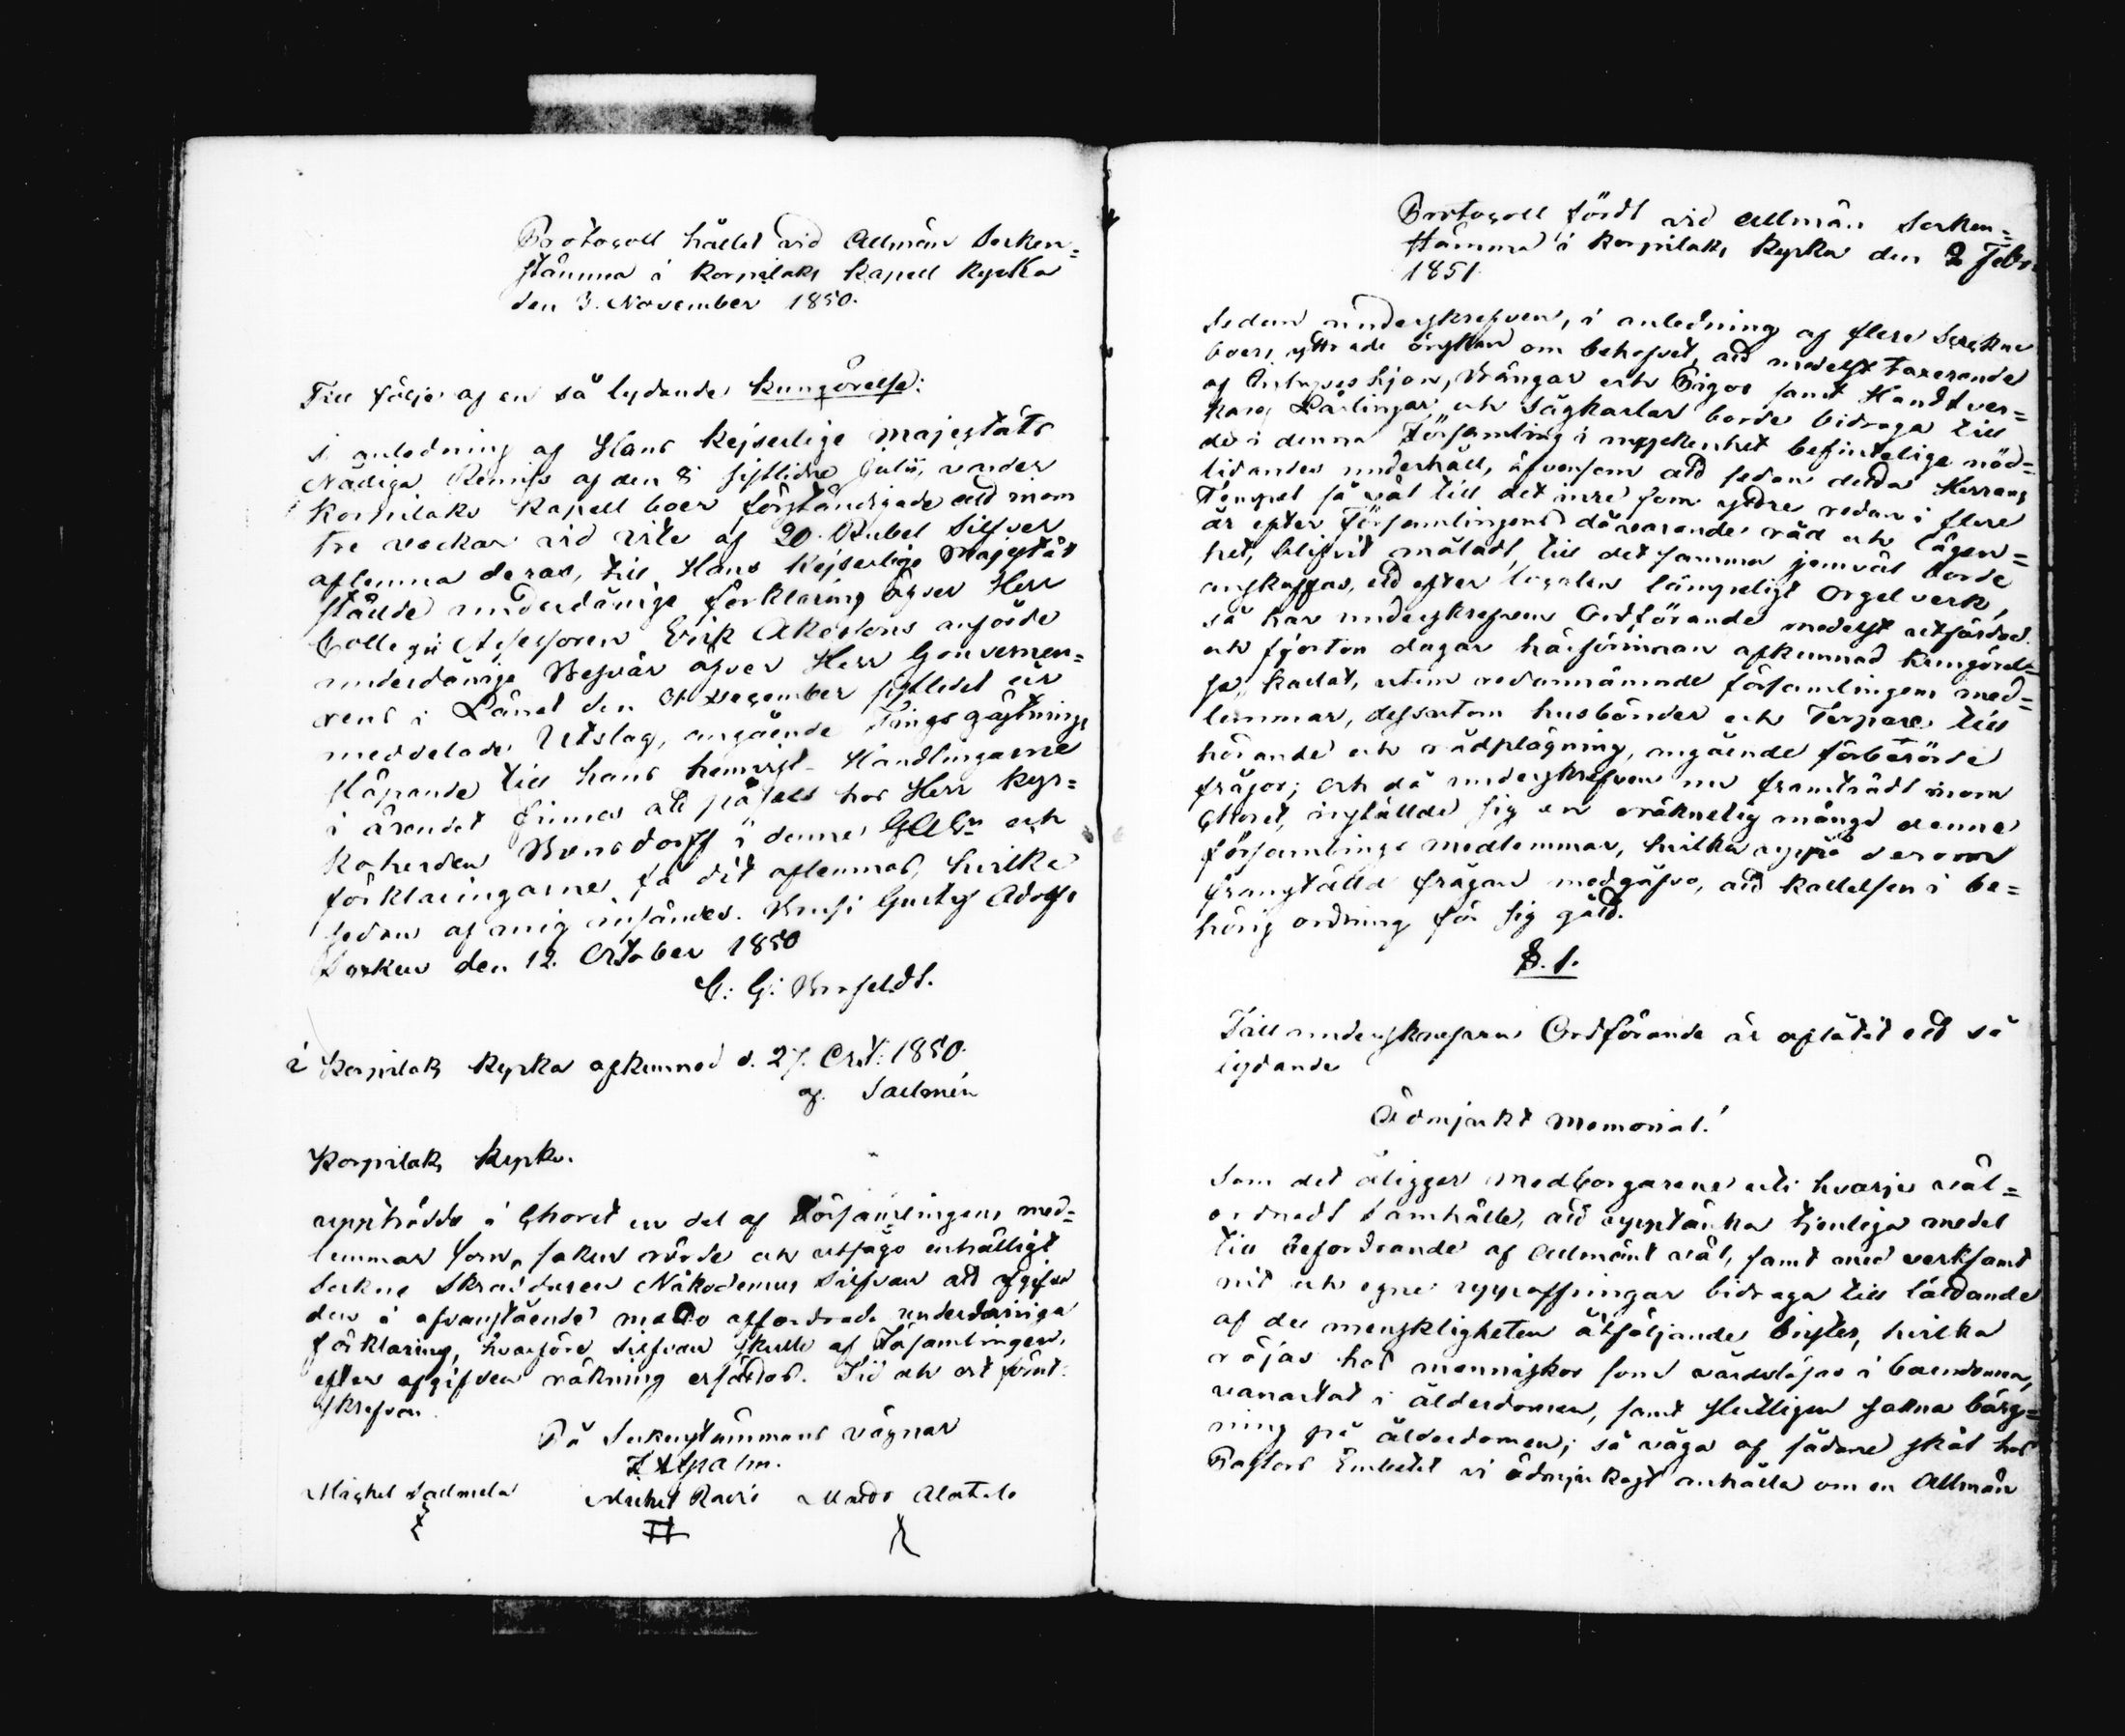 Protocoll hållet vid Allmän Socken=
stämma i Korpilaks Kapell Kyrka
den 3. November 1850.
Till följe af en så lydande Kungörelse:
I anledning af Hans Kejserlige Majestäts
Nådiga Remiss af den 8 sistlidne Julii, varder
Korpilaks Kapell boer förständigade att inom
tre veckor vid vite af 20 Rubel Silfver
aflemna deras, till Hans Kejserlige Majestät
stälde underdånige förklaring öfver Herr
Collegii Assessoren Erik Åkersons anförde
underdånige Besvär öfver Herr Gouverneu=
rens i Länet den 31 December sistledet år
meddelade Utslag, angående Tings gästnings
till hans hemvist Handlingarne
i ärendet finnes att påses hos Herr Kyr=
koherden Bonsdorff i denne och
förklaringarne få dit aflemnas, hvilke
sedan af mig insändes. Gustaf Adolfs
Socken den 12. October 1850
C: G:
i Korpilaks Kyrka afkunnad d. 27. Oct: 1850.
af Salmén
Korpilaks Kyrka.
uppträdde i Choret en del af Församlingens med=
lemmar som, saken rörde och utsågo enhälligt
Sockne Skräddaren Nikodemus Silfvan att afgifva
den i ofvanstående måtto affordrade underdåniga
förklaring, hvarföre Silfvan skulle af Församlingen,
efter afgifven räkning ersättas. Tid och ort förut
skrefven.
På Sockenstämmans vägnar
Michel Salmela Michel Ravi Matts Alatalo
Protocoll fördt vid Allmän Socken=
stämma i Korpilaks Kyrka den 2 Febr.
1851.
Sedan underskrefven, i anledning af flere Sockne
boers yttrade önskan om behofvet, att medelst taxerande
af Inhyses hjon, Drängar och Pigor samt Handtver=
kare, Lärlingar, och Sågkarlar borde bidraga till
de i denna Församling i myckenhet befintelige nöd=
lidandes underhåll, äfvensom att sedan detta Herrans
Tempel så väl till det inre som yttre redan i flere
år efter Församlingens dåvarande råd och lägen=
het, blifvit måladt, till det samma jemväl borde
anskaffas, ett efter localen lämpeligt Orgelverk,
så har underskrefven Ordförande medelst utfärdad
och fjorton dagar härförinnan afkunnad Kungörel=
se, kallat, utom redannämnde församlingens med=
lemmar, dessutom husbönder och Torpare till
hörande och rådplägning, angående förberörde
frågor; och då underskrefven nu framträdt inom
Choret, inställde sig en oräknelig mängd denne
församlings medlemmar, hvilka uppå derom
framstälda frågan medgåfvo, att kallelsen i be=
hörig ordning för sig gått.
§. 1.
Till underskrefven Ordförande är aflåtit ett så
lydande
Ödmjukt Memorial!
Som det åligger Medborgarene uti hvarje väl=
ordnadt samhälle, att upptänka tjenliga medel
till befordrande af Allmänt väl, samt med verksamt
nit och egne uppoffringar bidraga till lättande
af de menskligheten åtföljande brister, hvilka
röjas hos menniskor som vårdslösas i barndomen,
vanartat i ålderdomen, samt slutligen sakna bärg=
ning på ålderdomen; så våga af sådane skäl hos
Pastors Embetet vi ödmjukast anhålla om en Allmän